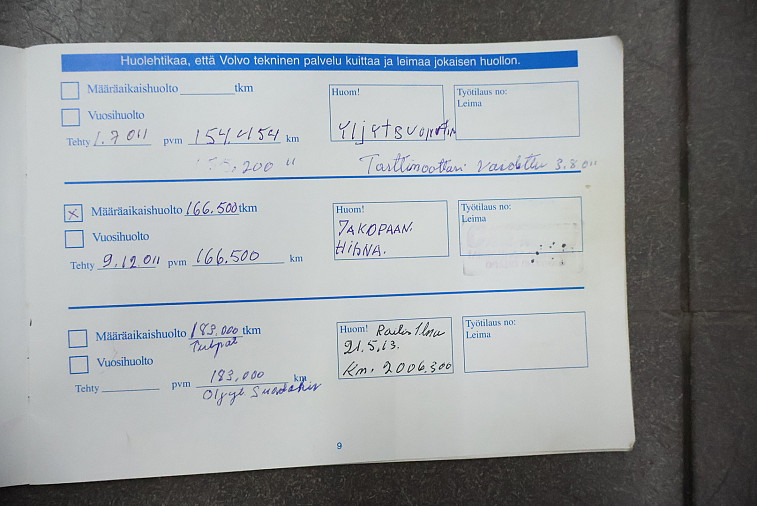 Huolehtikaa, että Volvo tekninen palvelu kuittaa ja leimaa jokaisen huollon.
Määräaikaishuolto tkm
Vuosihuolto
Tehty 1.7 011 pvm 154.454 km
200 "
Huom!
Työtilaus no:
Leima
3.8.011
Määräaikaishuolto 166.500 tkm
Vuosihuolto
Tehty 9.12 011 pvm 166.500 km
Huom!
JAKOPAAN.
HIHNA.
Työtilaus no:
Leima
Määräaikaishuolto 183.000 tkm
Tulpat
Vuosihuolto
Tehty pvm 183,000 km
Huom!
21.5.13.
Km. 2006.300
Työtilaus no:
Leima
9